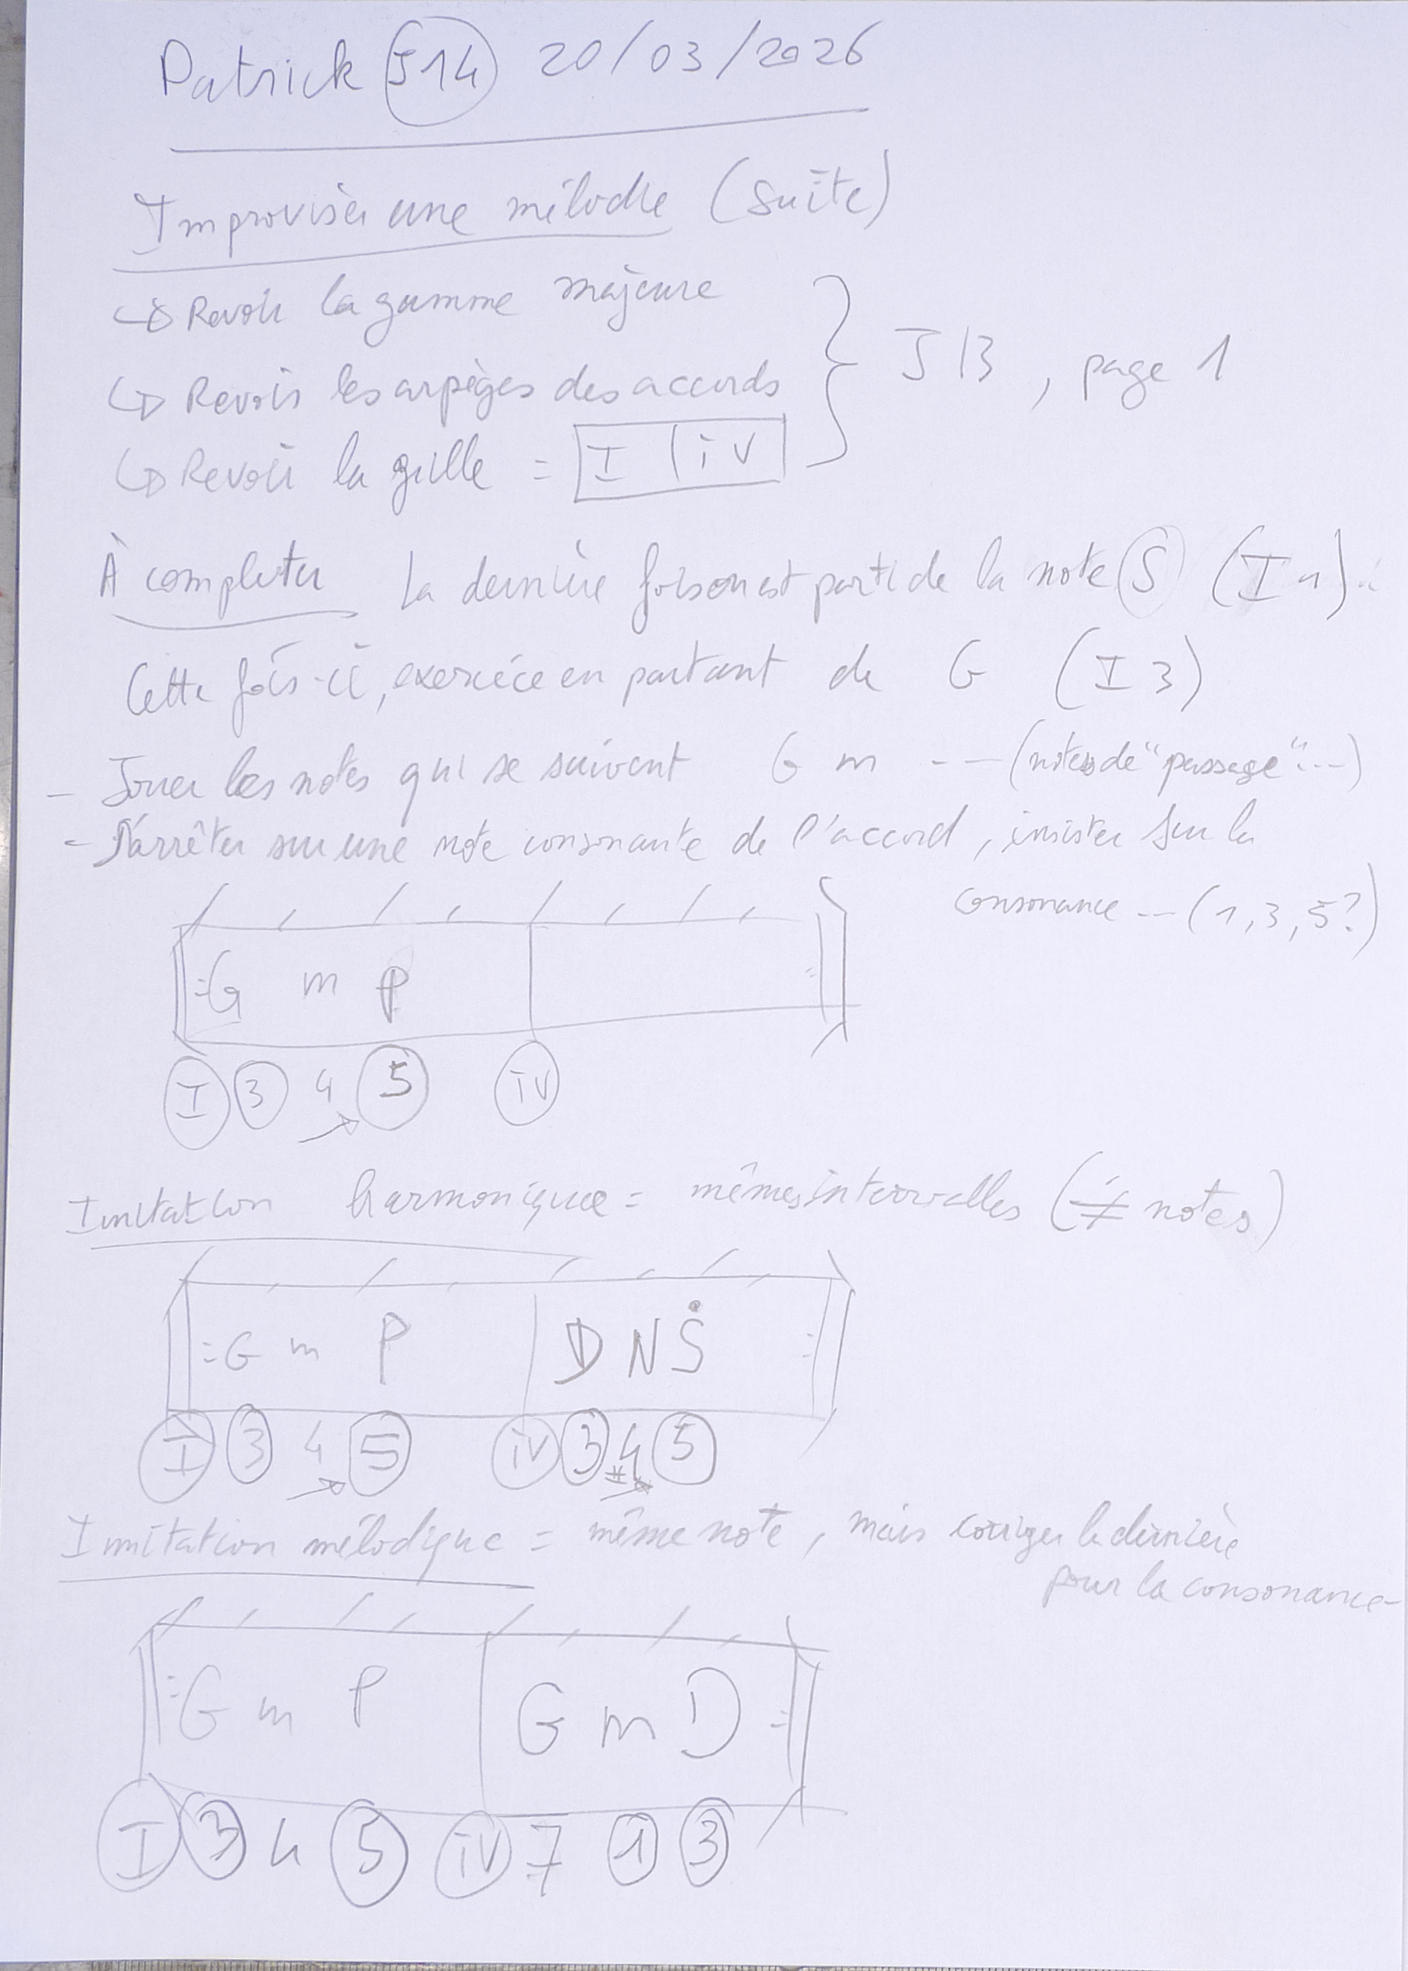 Patrick J14 20/03/2026
Improviser une mélodie (suite)
↳ Revoir la gamme majeure
↳ Revoir les arpèges des accords } J13, page 1
↳ Revoir la grille = I | iv
À compléter La dernière fois on est parti de la note S (I 1)
Cette fois-ci, exercice en partant de G (I 3)
- Jouer les notes qui se suivent G m -- (notes de "passage"...)
- S'arrêter sur une note consonante de l'accord, insister sur la
consonance -- (1, 3, 5?)
G m P
I 3 4 → 5 iv
Imitation harmonique = mêmes intervalles (≠ notes)
G m P D N Ṡ
I 3 4 → 5 iv 3 #4 → 5
Imitation mélodique = même note, mais corriger la dernière
pour la consonance -
G m P G m D
I 3 4 5 iv 7 1 3